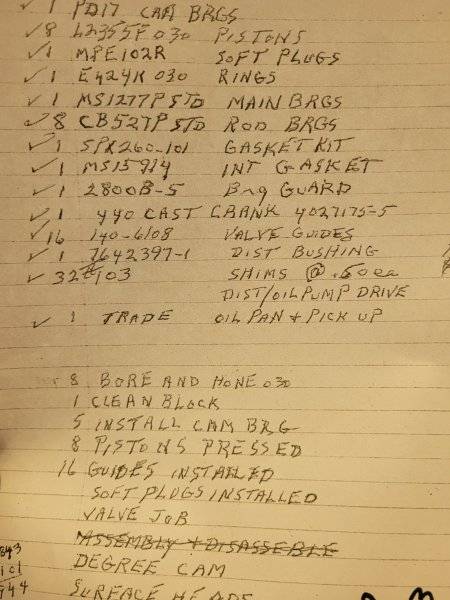 ✓ 1 PD17 CAM BRGS
✓ 8 L2355F 030 PISTONS
✓ 1 MPE102R SOFT PLUGS
✓ 1 E424K 030 RINGS
✓ 1 MS1277P STD MAIN BRGS
✓ 8 CB527P STD ROD BRGS
✓ 1 260-101 GASKET KIT
✓ 1 MS15914 INT GASKET
✓ 1 2800B-5 BRG GUARD
✓ 1 440 CAST CRANK 4027175-5
✓ 16 140-6108 VALVE GUIDES
✓ 1 7642397-1 DIST BUSHING
✓ 32 103 SHIMS @ .60 ea
DIST/OIL PUMP DRIVE
✓ 1 TRADE OIL PAN + PICK UP
8 BORE AND HONE 030
1 CLEAN BLOCK
5 INSTALL CAM BRG
8 PISTONS PRESSED
16 GUIDES INSTALLED
SOFT PLUGS INSTALLED
VALVE JOB
ASSEMBLY + DISASSEBLE
DEGREE CAM
SURFACE HEADS
843
101
944